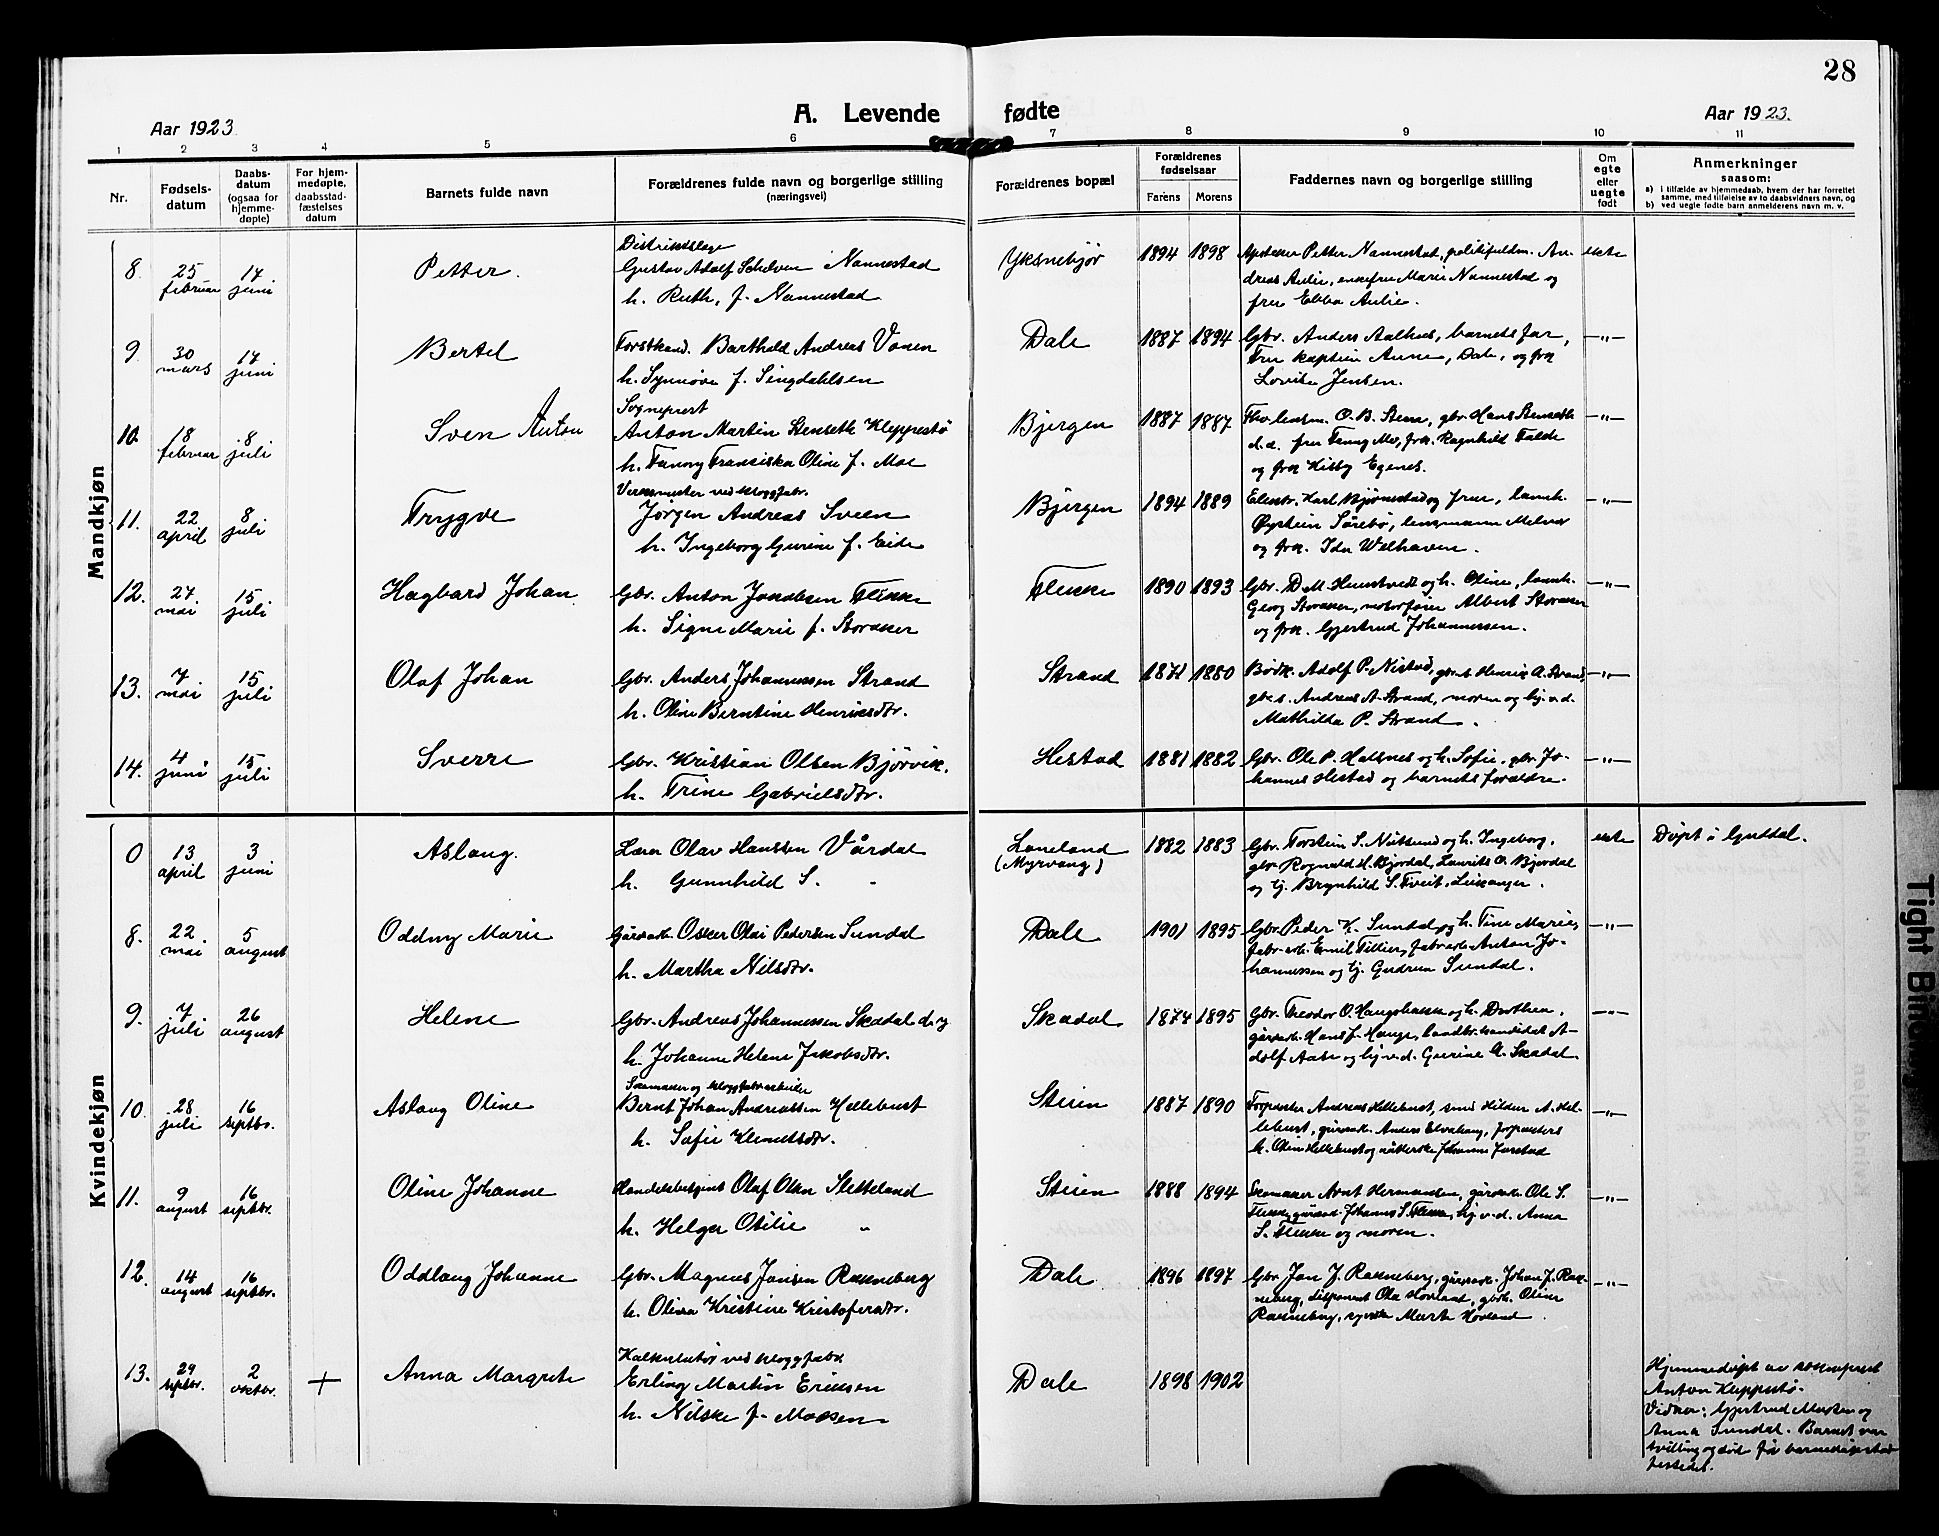 28
A. Levende fødte
Aar 1923.
Aar 1923.
1 2 3 4 5 6 7 8 9 10 11
Nr.
Fødsels-
datum
Daabs-
datum
(ogsaa for
hjemme-
døpte)
For hjem-
medøpte,
daabsstad-
fæstelses
datum
Barnets fulde navn
Forældrenes fulde navn og borgerlige stilling
(næringsvei)
Forældrenes bopæl
Forældrenes
fødselsaar
Farens Morens
Faddernes navn og borgerlige stilling
Om
egte
eller
uegte
født
Anmerkninger
saasom:
a) i tilfælde av hjemmedaab, hvem der har forrettet
samme, med tilføielse av to daabsvidners navn, og
b) ved uegte fødte barn anmelderens navn m. v.
Mandkjøn
8. 25 februar 17 juni Petter.
Distriktslæge
Gustav Adolf Schelven Nannestad
h. Ruth, f. Nannestad
Yksnebjør 1894 1898
Apoteker Petter Nannestad, politifuldm. An-
dreas Aulie, enkefru Marie Nannestad og
fru Ebba Aulie.
ekte
9. 30 mars 17 juni Bertel
Forstkand. Barthold Andreas Vonen
h. Synnøve f. Singdahlsen
Dale 1887 1894
Gbr. Anders Aalhus, barnets far,
Fru kaptein Anne, Dale, og frk
Lovise Jensen.
—„—
10. 18 februar 8 juli Sven Anton
Sogneprest
Anton Martin Stenseth Kleppestø
h. Fanny Franciska Oline f. Moe
Bjergen 1887 1887
O. B. Steen, gbr. Hans Stenseth
d. e. fru Fanny Mo, frk. Ragnhild Falde
og frk Hisby Egenes.
—„—
11. 22 april 8 juli Trygve
Verksmester ved kloggfabr.
Jørgen Andreas Sveen
h. Ingeborg Gurine f. Eide
Bjergen 1894 1889
Elektr. Karl Bjørnestad og frue, landh.
Øystein Sørebø, lensmann Melvær
og frk. Ida Welhaven.
—„—
12. 27 mai 15 juli Hagbard Johan
Gbr. Anton Jakobsen Flekke
h. Signe Marie f. Storaker
Flekke 1890 1893
Gbr. D. M. Hemstvedt og h. Oline, landh.
Georg Storaker, motorfører Albert Storaker
og frk. Gjertrud Johannessen.
—„—
13. 7 mai 15 juli Olaf Johan
Gbr. Anders Johannessen Strand
h. Oline Berntine Henriksdtr.
Strand 1871 1880
Bødk. Adolf P. Nistad, gbr.s. Henrik A. Strand,
gbr.s. Andreas A. Strand, moren og pi. v. d.
Mathilda P. Strand.
—„—
14. 4 juni 15 juli Sverre
Gbr. Kristian Olsen Bjørvik.
h. Trine Gabrielsdtr.
Hestad 1881 1882
Gbr. Ole P. Halsnes og h. Sofie, gbr. Jo-
hannes Hestad og barnets foreldre.
—„—
Kvindekjøn
0 13 april 3 juni Aslaug.
Lærer Olav Hanssen Vårdal
h. Gunnhild S. „
Loneland
(Myrvang)
1882 1883
Gbr. Torstein S. Nitsund og h. Ingeborg,
gbr Rognald H. Bjordal, Laurits O. Bjordal
og tj. Brynhild S. Tveit, Leikanger.
ekte Døpt i Guddal.
8. 22 mai 5 august Oddny Marie
Gårdark. Oskar Olai Pedersen Sundal
h. Martha Nilsdtr.
Dale 1901 1895
Gbr. Peder K. Sundal og h. Tine Marie,
fabr. arb. Emil Tillier, fabr. arb. Anton Jo-
hannessen og tj. Gudrun Sundal.
—„—
9. 7 juli 26 august Helene
Gbr. Andreas Johannessen Skadal d. y
h. Johanne Helene Jakobsdtr.
Skadal 1874 1895
Gbr. Teodor O. Haugshatten og h. Dorthea,
gårdark. Hans J. Hauge, landbr. kandidat A-
dolf Aase og pi. v. d. Gurine A. Skadal.
—„—
10. 28 juli 16 septbr. Aslaug Oline
Skomaker og kloggfabrarbeider
Bernt Johan Andreassen Hellebust
h. Sofie Klemetsdtr.
Steien 1887 1890
Forpakter Andreas Hellebust, smed Hilder A. Hel-
lebust, gårdark. Anders Elvekang, forpakters
h. Oline Hellebust og Johanne Jarstad
—„—
11. 9 august 16 septbr. Oline Johanne
Handelsbetjent Olaf Olsen Sletteland
h. Helga Otilie „
Steien 1888 1894
Skomaker Arnt Hermansen, gårdark. Ole S.
Flekke, gårdark. Johannes S. Flekke, pi. v. d. Anna
S. Flekke og moren.
—„—
12. 14 august 16 septbr. Oddlaug Johanne
Gbr. Magnus Jansen Rakneberg
h. Olina Kristine Kristofersdtr.
Dale 1896 1897
Gbr Jan J. Rakneberg, gårdark. Johan J. Rak-
neberg, disponent Ola Hovland, gbrk. Oline
Rakneberg, syerske Marta Hovland.
—„—
13. 29 septbr. 2 oktbr. + Anna Margrete
Kalkulatør ved kloggfabr.
Erling Martin Eriksen
h. Nilske f. Madsen
Dale 1898 1902
Hjemmedøpt av sokneprest
Anton Kleppestø.
Vidner: Gjertrud Madsen og
Anna Sundal. Barnet var
tvilling og død før barnedåpen stad-
festedes.
Tight Binding